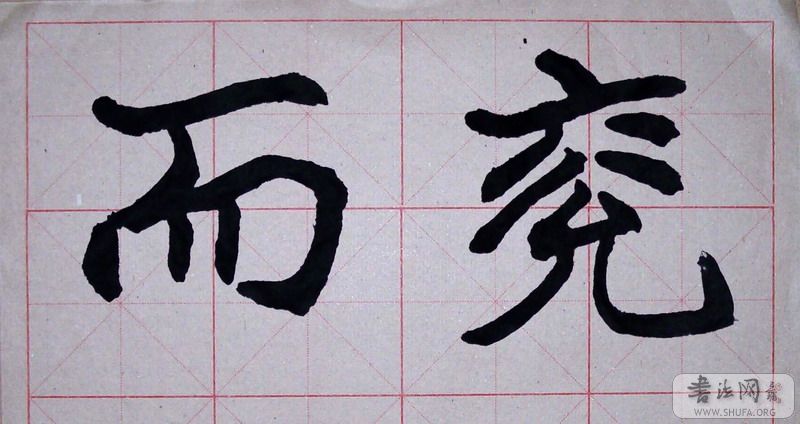 兖而
書法网
WWW.SHUFA.ORG